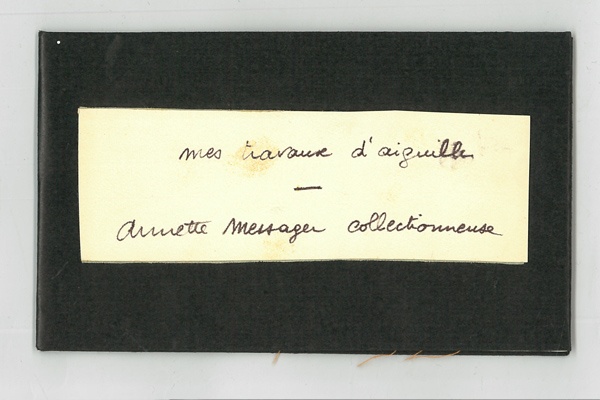 mes travaux d'aiguille
—
Annette Messager collectionneuse